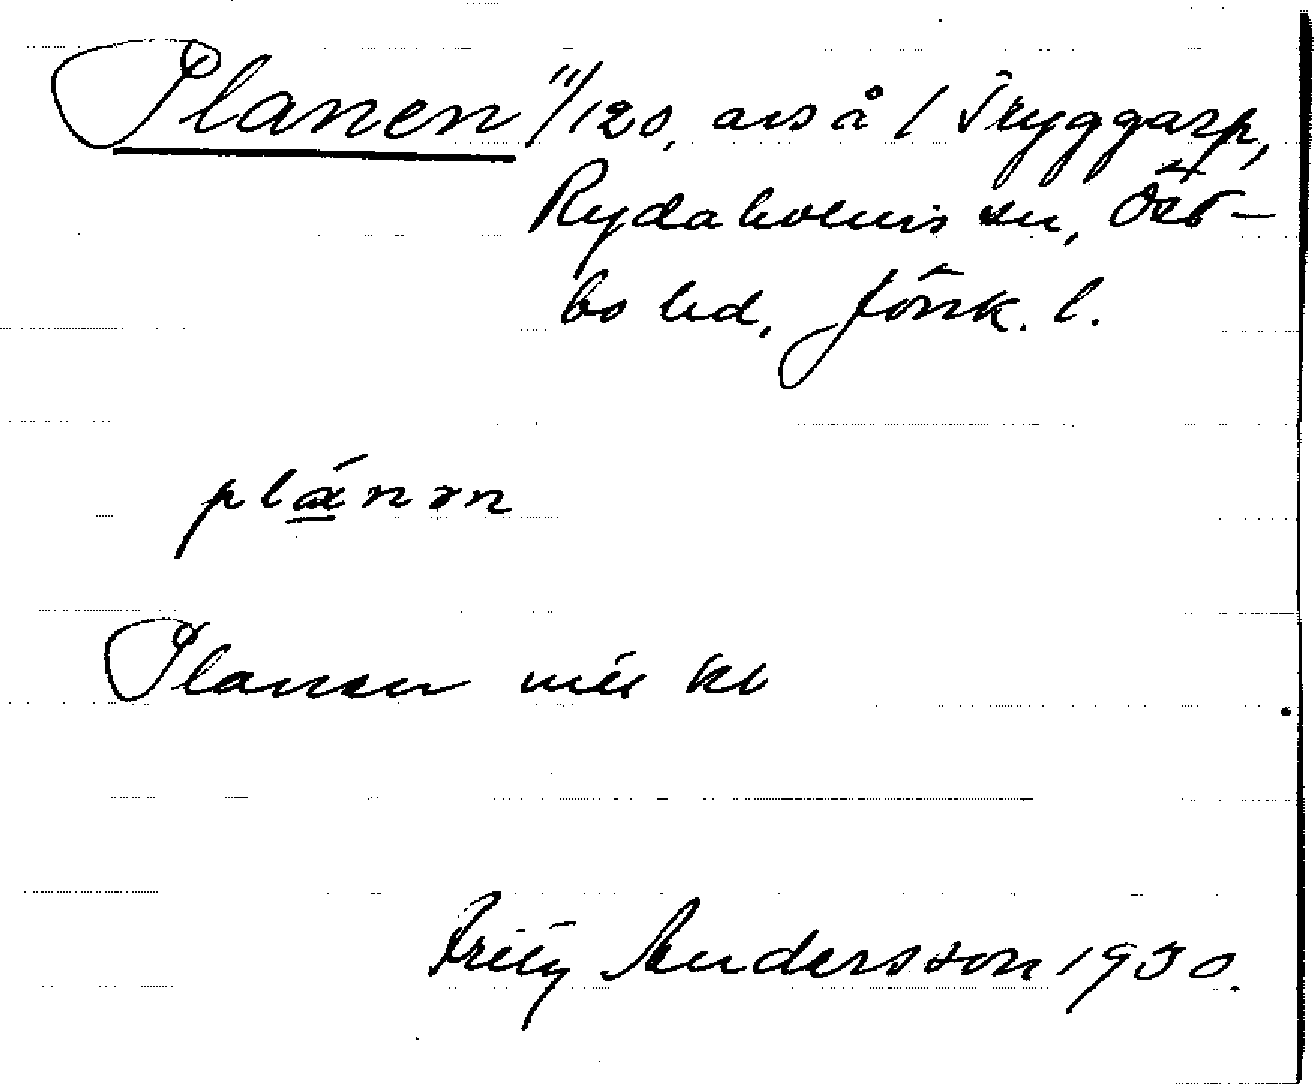 Planen 11/120, avs å / Tryggarp,
Rydaholms sn, Öst-
bo hd, Jönk. l.
plánən
Planen mer kb
Fritz Andersson 1930.